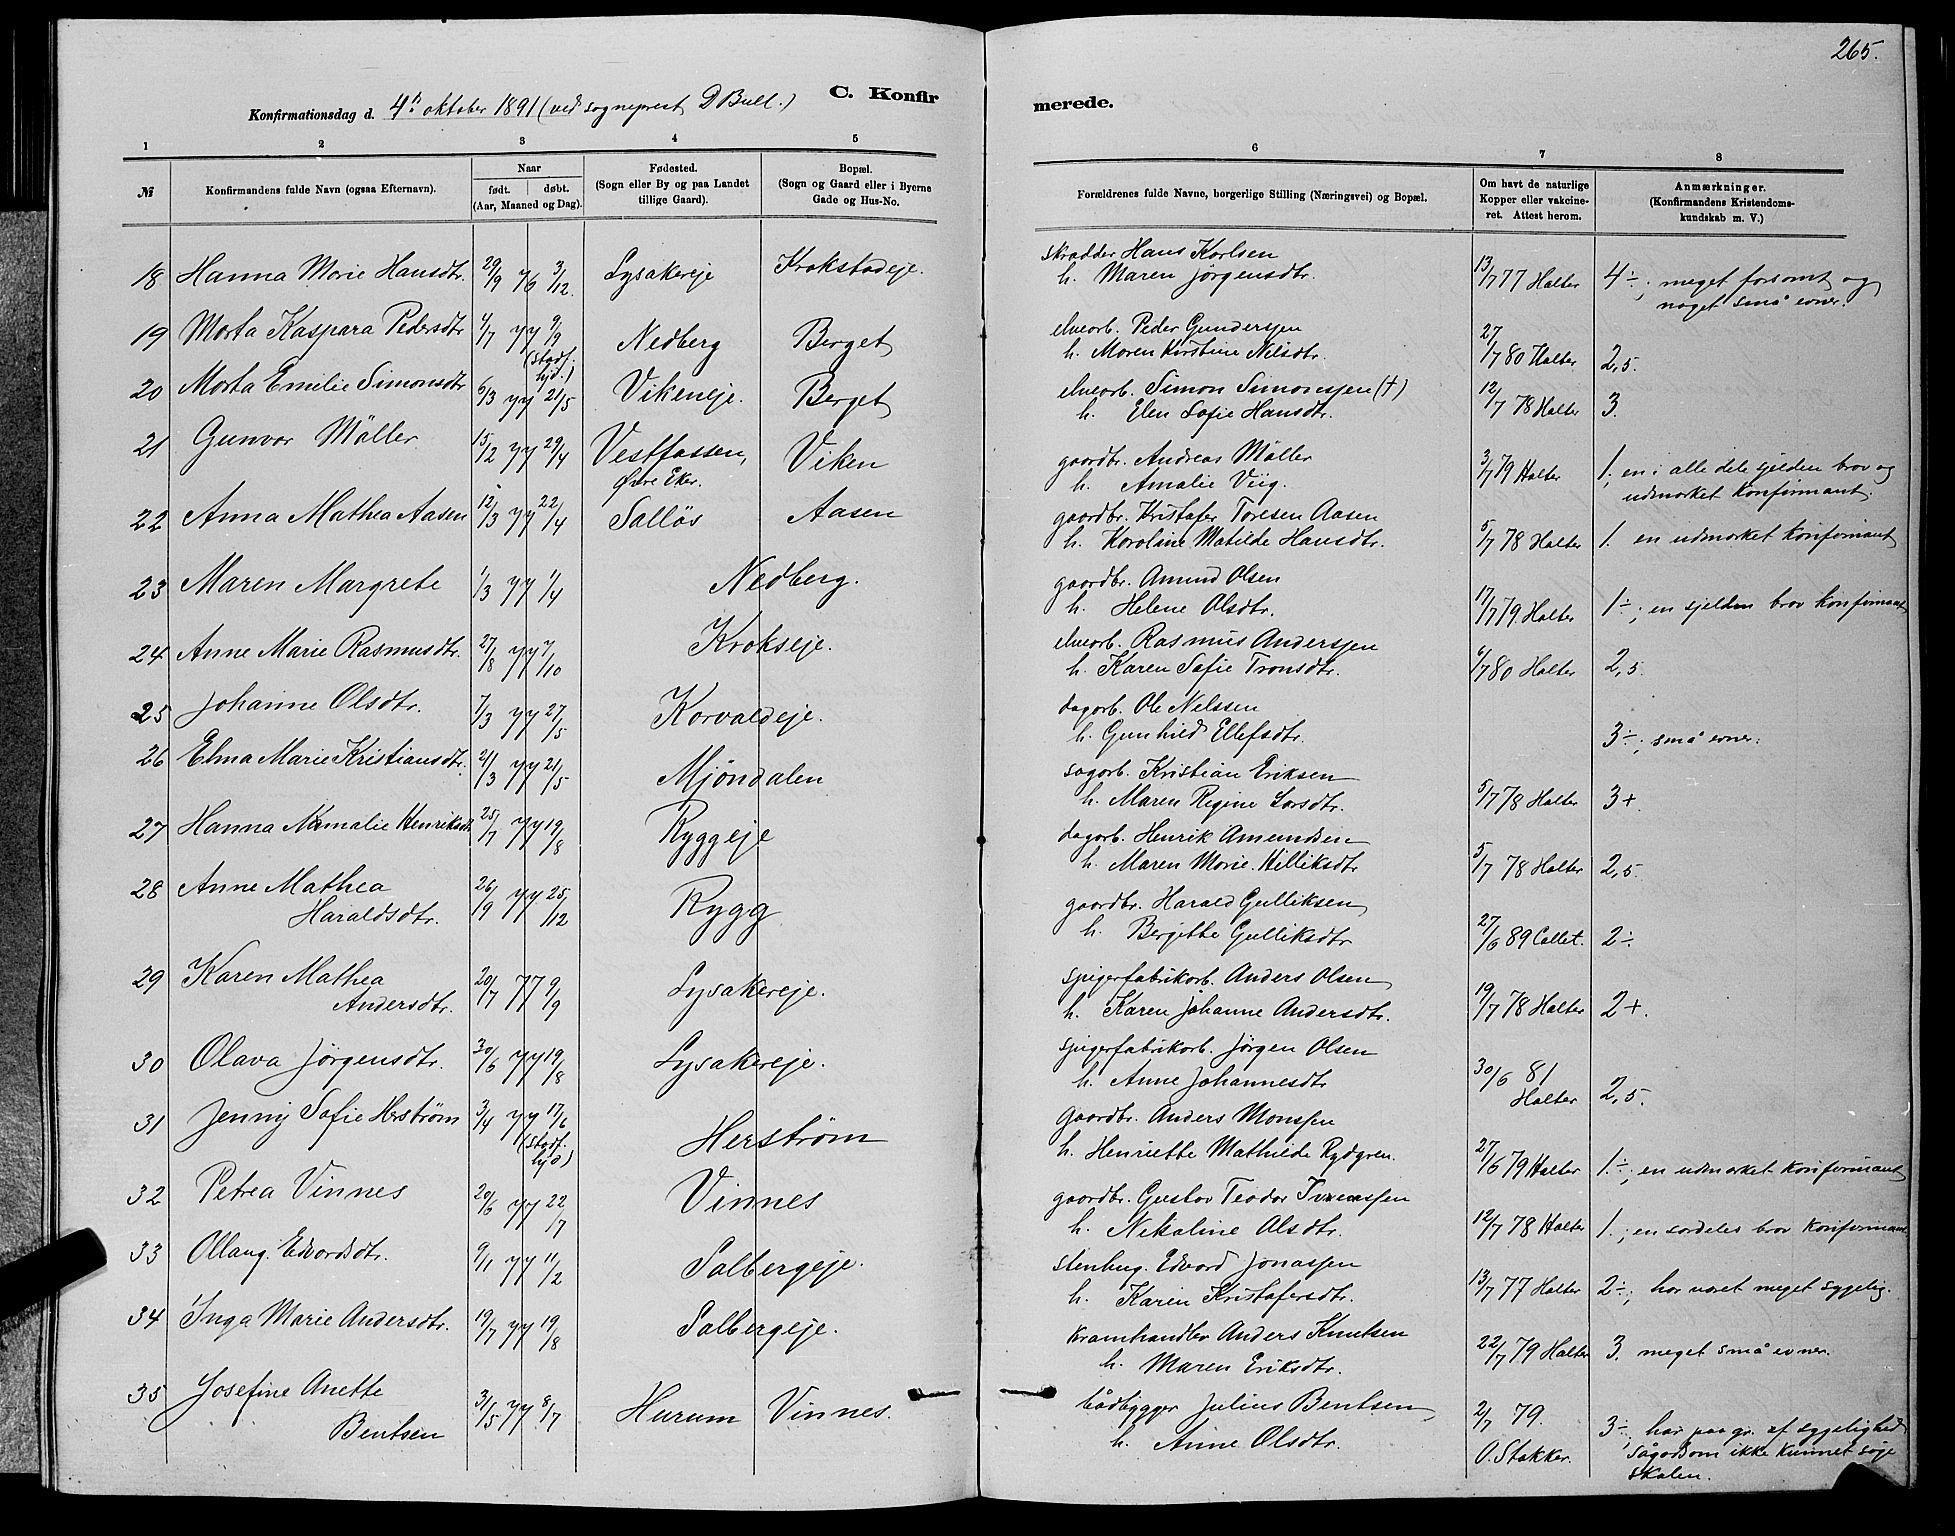 265.
Konfirmationsdag d. 4de oktober 1891 (ved sogneprest D Bull.) C. Konfirmerede.
1 2 3 4 5 6 7 8
№ Konfirmandens fulde Navn (ogsaa Efternavn). Naar født. døbt. (Aar, Maaned og Dag). Fødested. (Sogn eller By og paa Landet tillige Gaard). Bopæl. (Sogn og Gaard eller i Byerne Gade og Hus-No. Forældrenes fulde Navne, borgerlige Stilling (Næringsvei) og Bopæl. Om havt de naturlige Kopper eller vakcineret. Attest herom. Anmærkninger. (Konfirmandens Kristendomskundskab m. V.)
18 Hanna Marie Hansdtr. 29/9 76 3/12. Lysakereje Krokstadeje. skrædder Hans Karlsen
h. Maren Jørgensdtr. 13/7 77 Halter 4÷; meget forsømt og
noget små evner.
19 Marta Kaspara Pedersdtr 4/7 77 9/9 (Stadf. hjd.) Nedberg Berget elvearb. Peder Gunderssen
h. Maren Kirstine Nilsdtr. 27/7 80 Halter 2,5.
20 Marta Emilie Simonsdtr 6/3 77 21/5 Vikeneje. Berget elvearb. Simon Simonssen (†)
h. Elen Sofie Hansdtr. 12/7 78 Halter 3.
21 Gunvor Möller 15/2 77 29/4 Vestfossen, Øvre Eker. Viken gaardbr. Andreas Möller
h. Amalie Viig. 3/7 79 Halter 1.; en i alle dele sjelden brav og
udmærket konfirmant.
22 Anna Mathea Aasen 12/3 77 22/4 Salløs Aasen gaardbr. Kristofer Toresen Aasen
h. Karoline Matilde Hansdtr. 5/7 78 Halter 1. en udmærket konfirmant
23 Maren Margrete 1/3 77 1/4 Nedberg. gaardbr. Amund Olsen
h. Helene Olsdtr. 17/7 79. Halter 1÷; en sjelden brav konfirmant
24 Anne Marie Rasmusdtr. 27/8 77 7/10 Krokseje. elvearb. Rasmus Anderssen
h. Karen Sofie Tronsdtr. 6/7 80 Halter 2,5.
25 Johanne Olsdtr. 7/3 77 27/5 Korvaldeje. dagarb. Ole Nelssen
h. Gunhild Ellefsdtr. 3÷; små evner.
26 Elma Marie Kristiansdtr. 21/3 77 21/5 Mjöndalen sagarb. Kristian Eriksen
h. Maren Regine Larsdtr. 5/7 78 Halter 3+.
27 Hanna Namalie Henriksdtr 25/7 77 19/8 Ryggeje dagarb. Henrik Amundsen
h. Maren Marie Killiksdtr 5/7 78 Halter 2,5.
28 Anne Mathea
Haraldsdtr. 26/9 77 25/12 Rygg gaardbr. Harald Gulliksen
h. Bergitte Gulliksdtr 27/6 89 Collet. 2÷
29 Karen Mathea
Andersdtr. 20/7 77 9/9 Lysakereje. spigerfabrikarb. Anders Olsen
h. Karen Johanne Andersdtr. 19/7 78 Halter 2+.
30 Olava Jørgensdtr. 30/6 77 19/8 Lysakereje. spigerfabrikarb. Jørgen Olsen
h. Anne Johannesdtr 30/6 81 Halter 2,5.
31 Jenny Sofie Herstrøm 3/4 77 17/6 (Stadf. hjd) Herstrøm Gaardbr. Anders Monssen
h. Henriette Mathilde Rydgren. 27/6 79 Halter 1.÷; en udmærket konfirmant
32 Petrea Vinnes 20/6 77 22/7 Vinnes gaardbr. Gustav Teodor Iverssen
h. Nikoline Olsdtr. 12/7 78 Halter 1.; en særdeles brav konfirmant
33 Ollaug. Edvardsdtr. 9/1 77 11/2 Solbergeje. stenhug. Edvard Jonassen
h. Karen Kristofersdtr. 13/7 77 Halter 2÷; har været meget sygelig.
34 Inga Marie Andersdtr. 19/7 77 19/8 Solbergeje. kramhandler Anders Knutsen
h. Maren Eriksdtr. 22/7 79 Halter 3. meget små evner.
35 Josefine Anette
Bentsen 31/5 77. 8/7 Hurum Vinnes. bådbygger Julius Bentsen
h. Anne Olsdtr. 2/7 79. O. Stakker. 3÷; har paa gr. af sygelighed
sågodsom ikke kunnet søge
skolen.